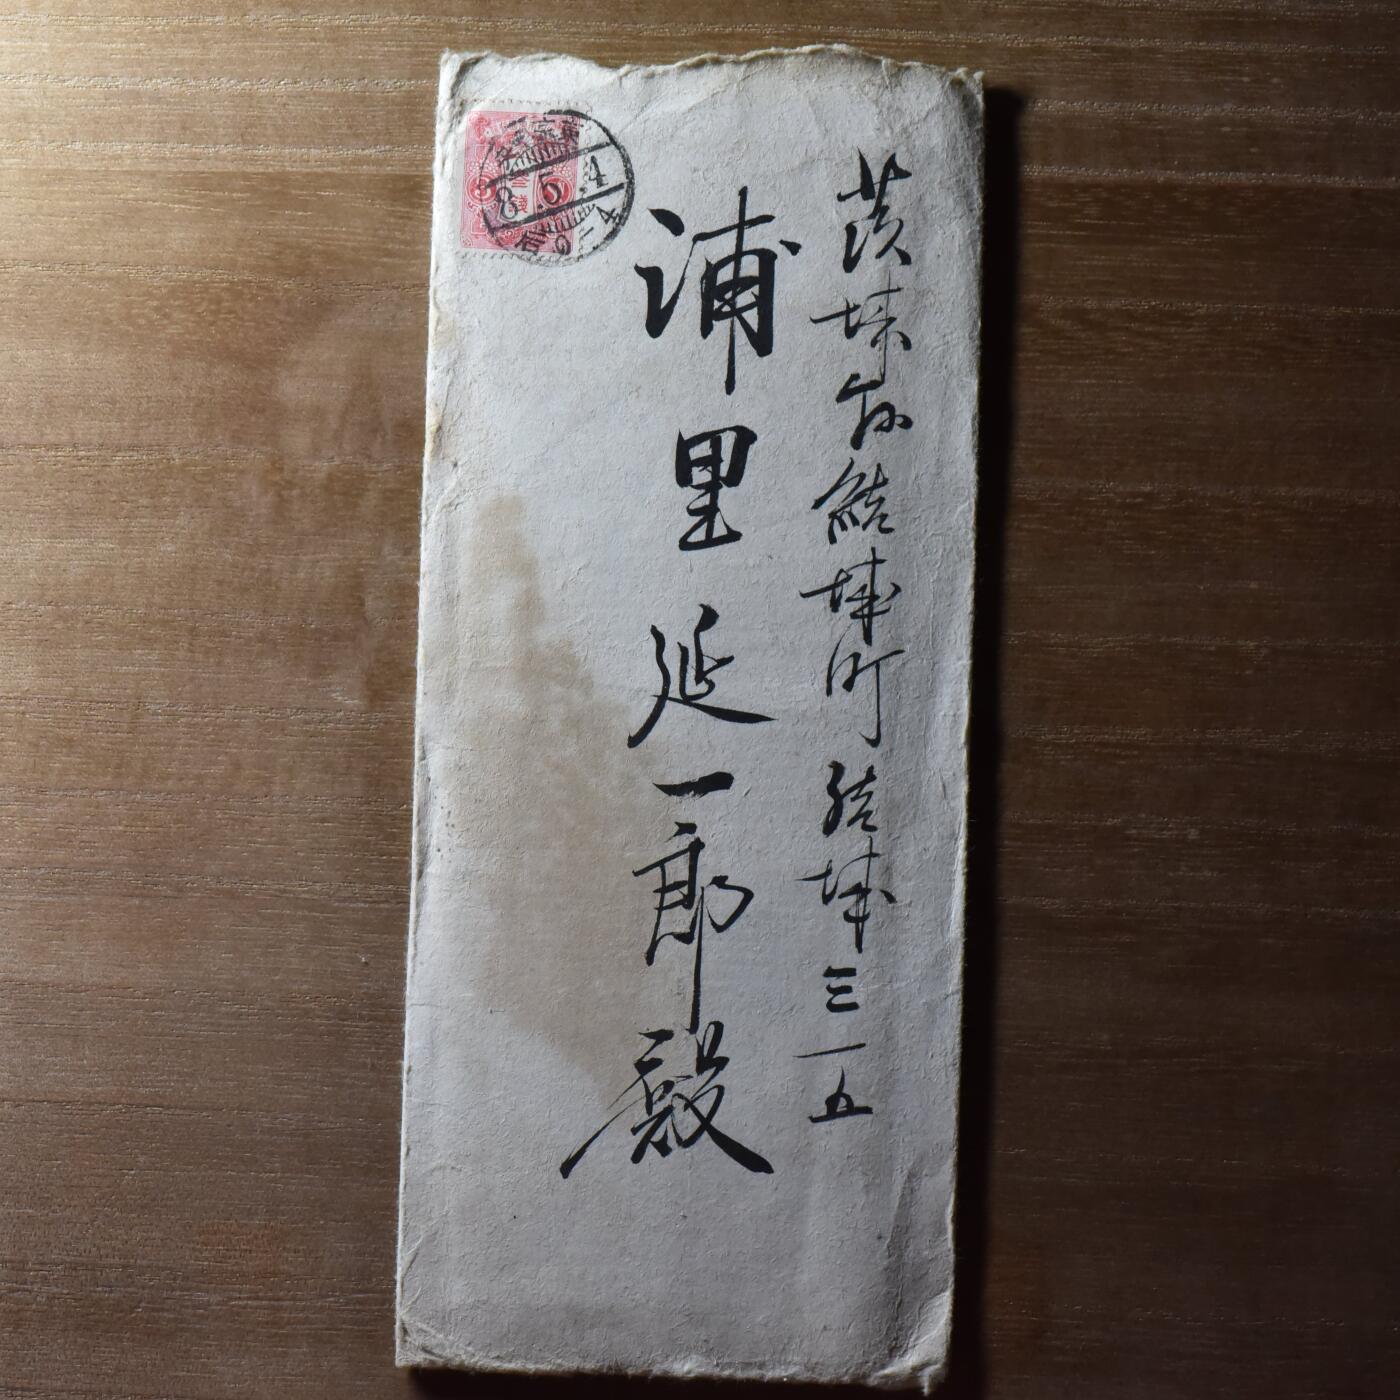 茨城県結城町結城三一五
浦里延一郎殿
8.5.4